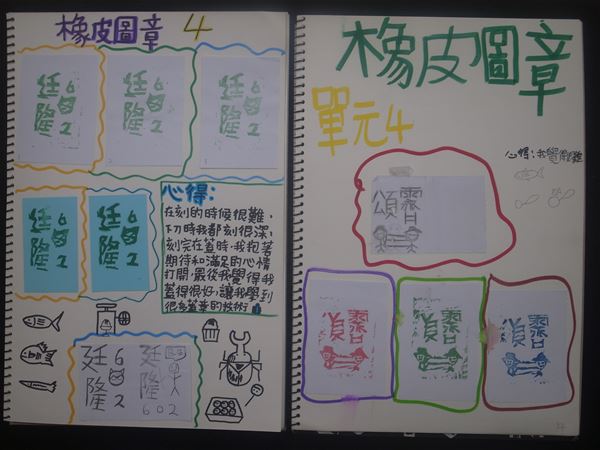 橡皮圖章 4
廷隆
602
廷隆
602
廷隆
602
廷隆
602
廷隆
602
心得:
在刻的時候很難,
下時我都刻很深,
刻完在蓋時,我抱著
期待和滿足的心情
打開,最後我覺得我
蓋得很好,讓我學到
很多蓋章的技術
廷隆
602
廷隆
602
橡皮圖章
單元4
心得:我覺得很難